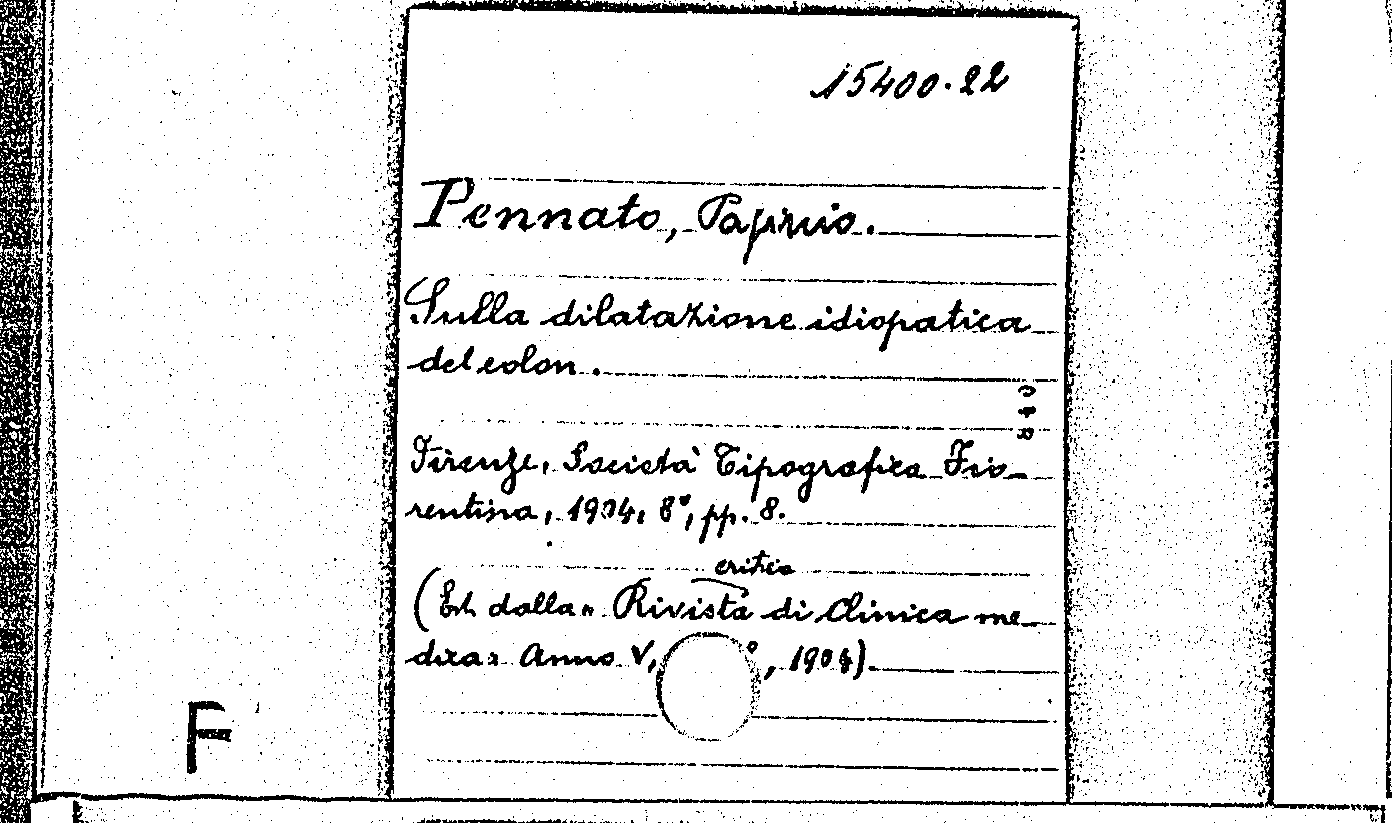 15400.22
Pennato, Papinio.
Sulla dilatazione idiopatica
del colon.
Firenze, Società Tipografica Fio-
rentina, 1904, 8°, pp. 8.
critica
(Est. dalla " Rivista di Clinica me-
dica" Anno V, °, 1904).
F